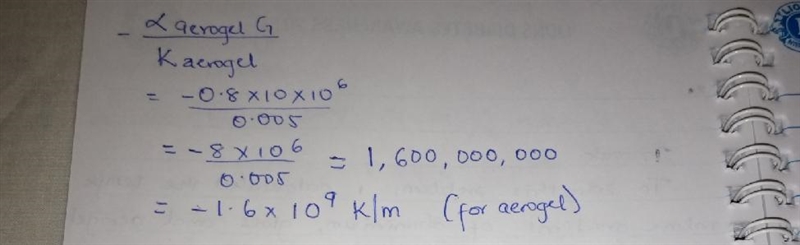 - α aerogel G
K aerogel
= -0.8 x 10 x 10⁶
0.005
= -8 x 10⁶ = 1,600,000,000
0.005
= -1.6 x 10⁹ K/m (for aerogel)